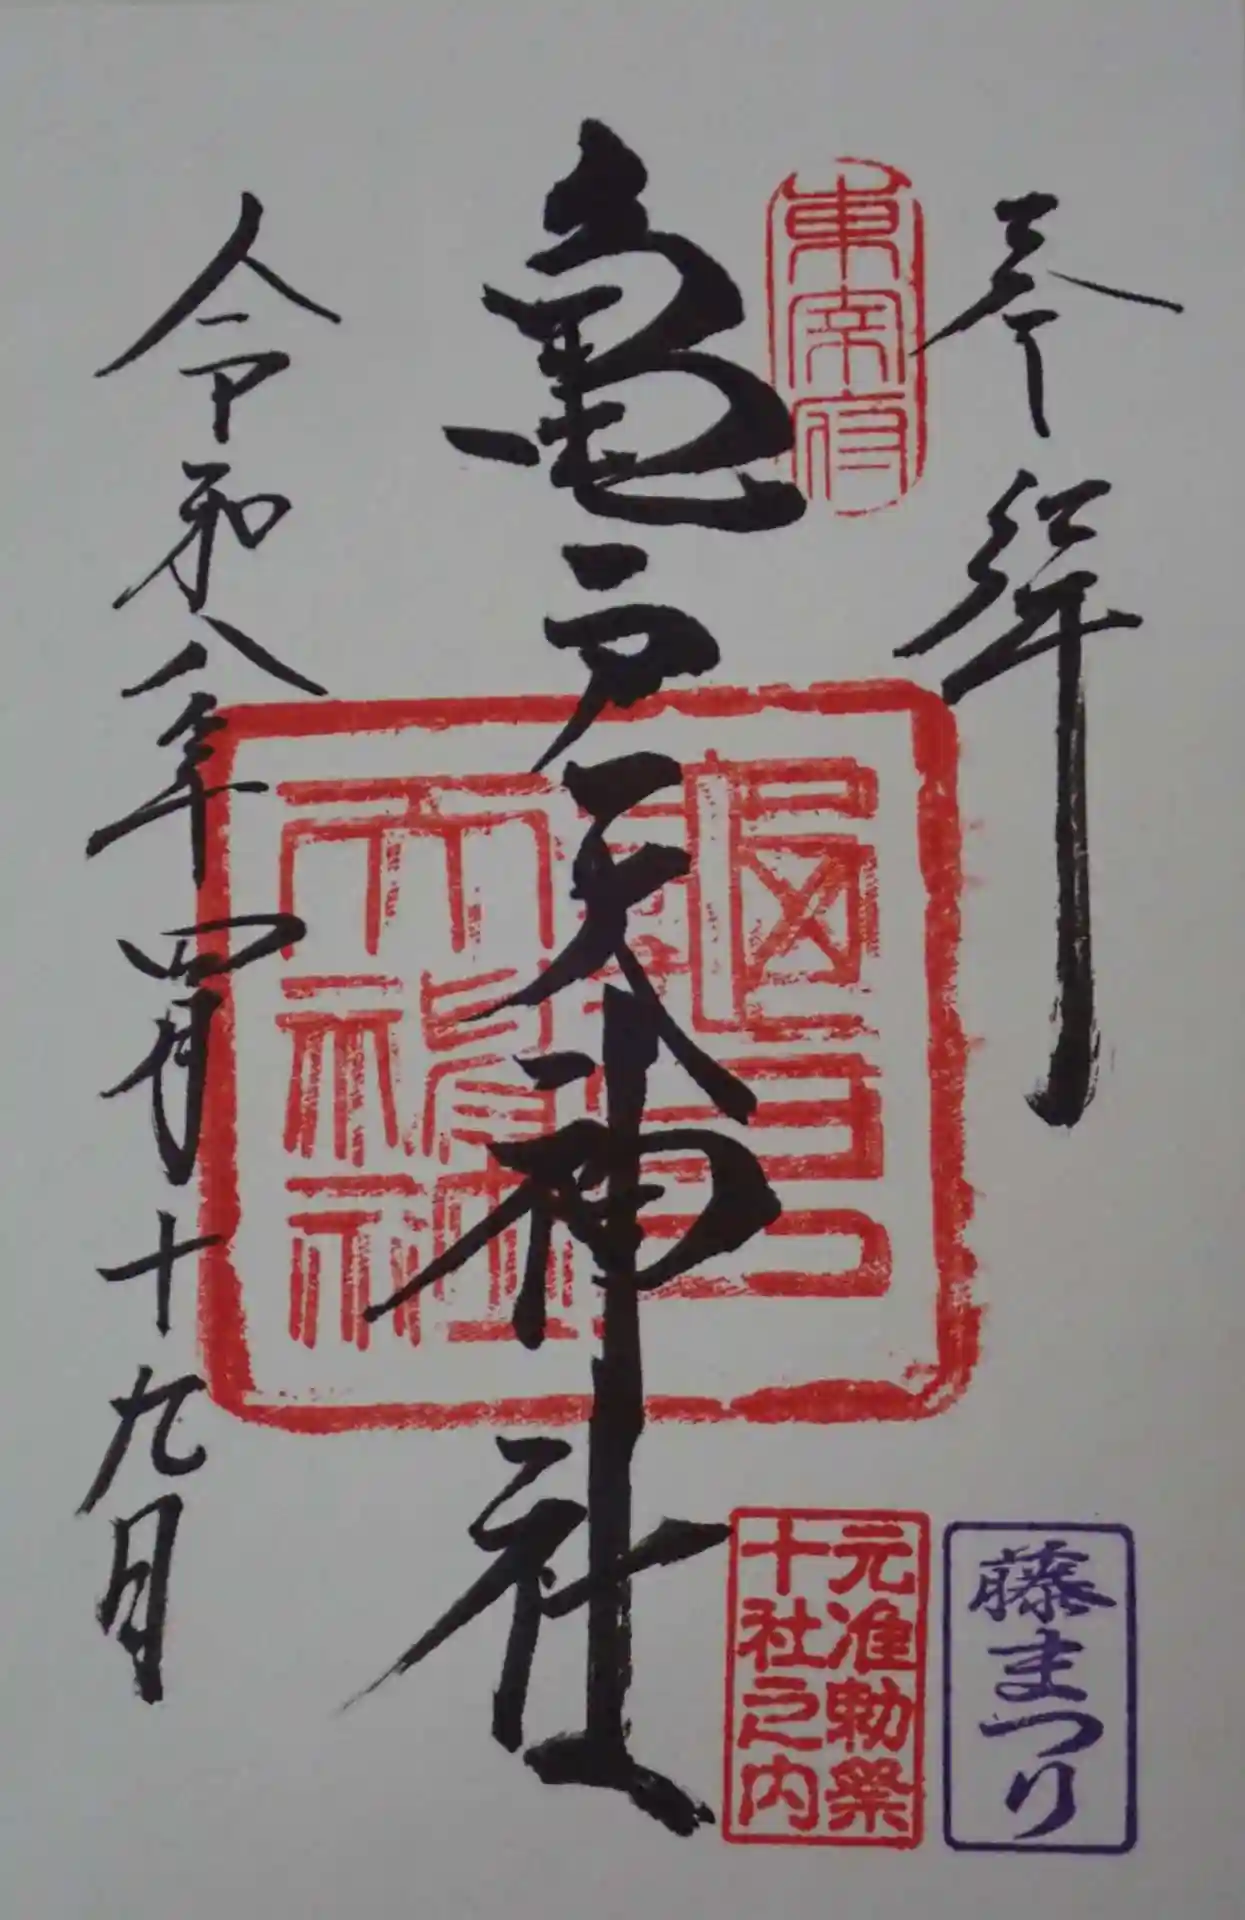 奉拝
東宰府
亀戸天神社
亀戸天神社
元准勅祭
十社之内
藤まつり
令和八年四月十九日